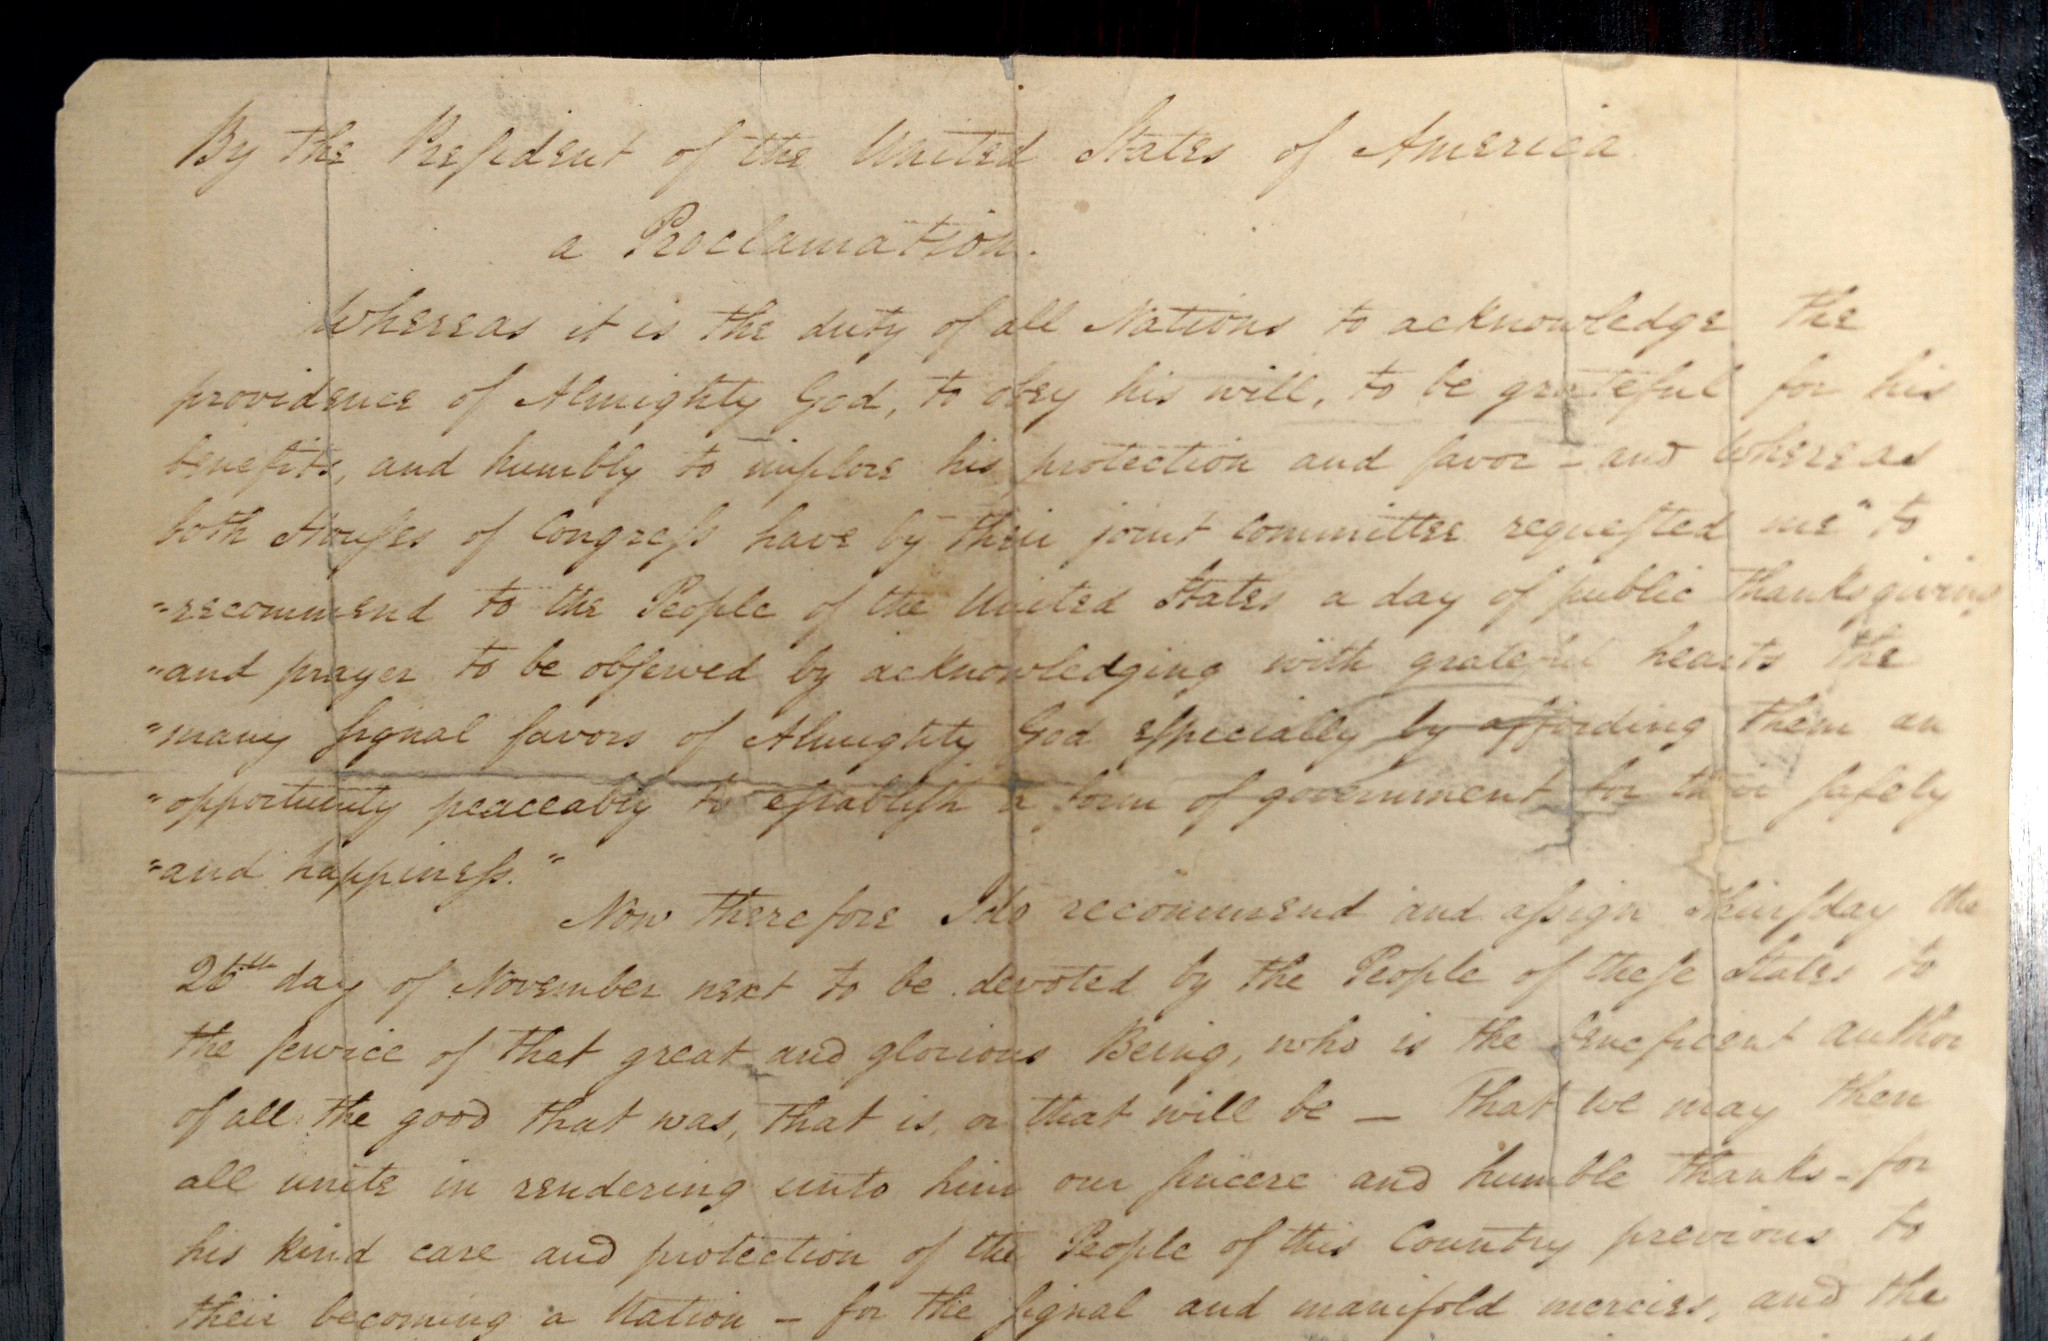 By the President of the United States of America
a Proclamation.
Whereas it is the duty of all Nations to acknowledge the
providence of Almighty God, to obey his will, to be grateful for his
benefits, and humbly to implore his protection and favor – and Whereas
both Houses of Congress have by their joint committee requested me "to
"recommend to the People of the United States a day of public thanksgiving
"and prayer to be observed by acknowledging with grateful hearts the
"many signal favors of Almighty God especially by affording them an
"opportunity peaceably to establish a form of government for their safety
"and happiness."
Now therefore I do recommend and assign Thursday the
26th day of November next to be devoted by the People of these States to
the service of that great and glorious Being, who is the beneficent author
of all the good that was, that is, or that will be – That we may then
all unite in rendering unto him our sincere and humble thanks – for
his kind care and protection of the People of this Country previous to
their becoming a Nation – for the signal and manifold mercies, and the